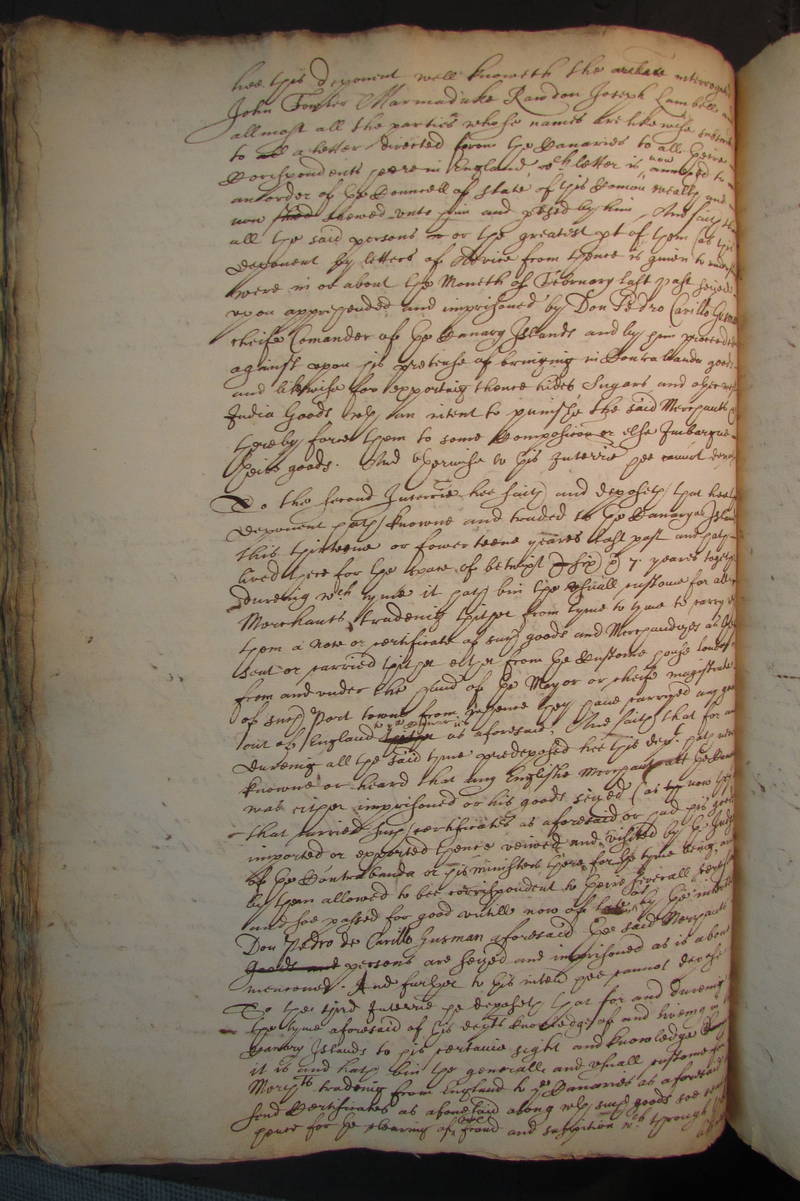 hee this deponent well knoweth the arlate interrogate
John Fowler Marmaduke Rawdon Joseph Lambell and
allmost all the parties whose names are likewise
to a letter directed from the Canaries to all theire
Correspondents heere in England, which letter is now annexed to
an order of the Councell of State of this Comon wealth and
now shewed unto him and pused by him, And saith that
all the said persons or the greatest pt of them (as this
deponent by letters of Advice from thence is given to understand
were in or about the Moneth of February last past seized
upon apprehended and imprisoned by Don Pedro Carillo Gusman
cheife Comander of the Canary Islands and by him proceeded
against upon his pretense of bringing in Contrabanda goods
and likewise for exporting thence hides, Sugars, and other west
India Goods with an intent to punishe the said Merchants (
thereby force them to some Composicon or else Imbarque
theire goods. And otherwise to this Interrie hee cannot depose
To the second Interrie hee saith and deposeth that hee this
deponent hath knowne and traded to the Canarye Islands
this thirteene or fowerteene yeares last past and hath
lived there for the space of betwixt six @ 7 yeares together
dureing wch tyme it hath bin the usuall custome for all
Merchants tradeing thither from tyme to tyme to carry with
them a note or certificate of such goods and Merchandizes as they
sent or carried thither either from the Custome house London
from and under the hand of the Mayor or cheife magistrate
of such Port towne from whence they have carryed any goods
out of England to ye Canaries as aforesaid, And saith that for and
dureing all the said tyme predeposed hee this dept. hath not
knowne or heard that any Englishe Merchant att the Canaries
was either imprisoned or his goods seized (as now they
that carried such certificates as aforesaid or had his goods
imported or exported thence veiwed and visited by the Judge
of the Contrabanda or his ministers there for the tyme being, and
by them allowed to bee correspondent to theire severall
and soe passed for good untill now of late by the
Don Pedro de Carillo Gusman aforesaid the said Merchants
goods and persons are seized and imprisoned as is above
mencioned. And further to this interr hee cannot depose
To the third Interrie he deposeth that for and dureing
the tyme aforesaid of his depts knowledge of and liveing in
Canary Islands to his certaine sight and knowledge
it is and hath bin the generall and usuall custome for
Merchts tradeing from England to ye Canaries as aforesaid
send Certificates as aforesaid along with such goods soe
hence for the clearing of fraud and suspition wch